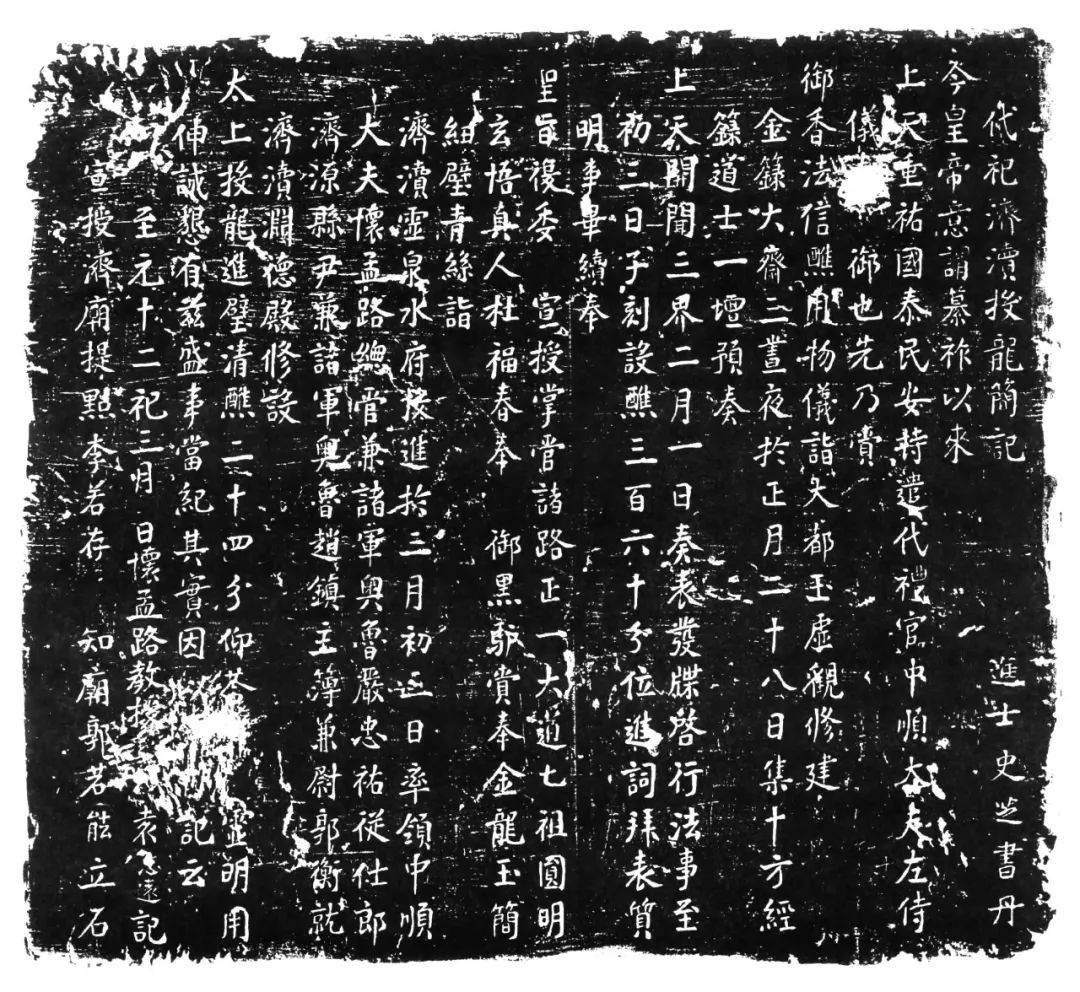 代祀濟瀆投龍簡記 進士史芝書丹
今皇帝意謂纂祚以來
上天垂祐國泰民安特遣代禮官中順大夫左侍
儀 御也先乃賫
御香法信醮用物儀詣大都玉虛觀修建
金籙大齋三晝夜於正月二十八日集十方經
籙道士一壇預奏
上天關聞三界二月一日奏表發牒啓行法事至
初三日子刻設醮三百六十分位進詞拜表質
明事畢續奉
聖旨復委 宣授掌管諸路正一大道七祖圓明
玄悟真人杜福春奉 御黑馿賫奉金龍玉簡
紐璧青絲詣
濟瀆靈泉水府投進於三月初三日率領中順
大夫懷孟路總管兼諸軍奧魯嚴忠祐從仕郎
濟源縣尹兼諸軍奧魯趙鎮主簿兼尉郭衡就
濟瀆淵德殿修設
太上投龍進璧清醮二十四分仰荅 靈明用
伸誠懇有茲盛事當紀其實因 記云
至元十二祀三月 日懷孟路教授 袁志遠記
宣授濟廟提點李若存 知廟郭若能立石